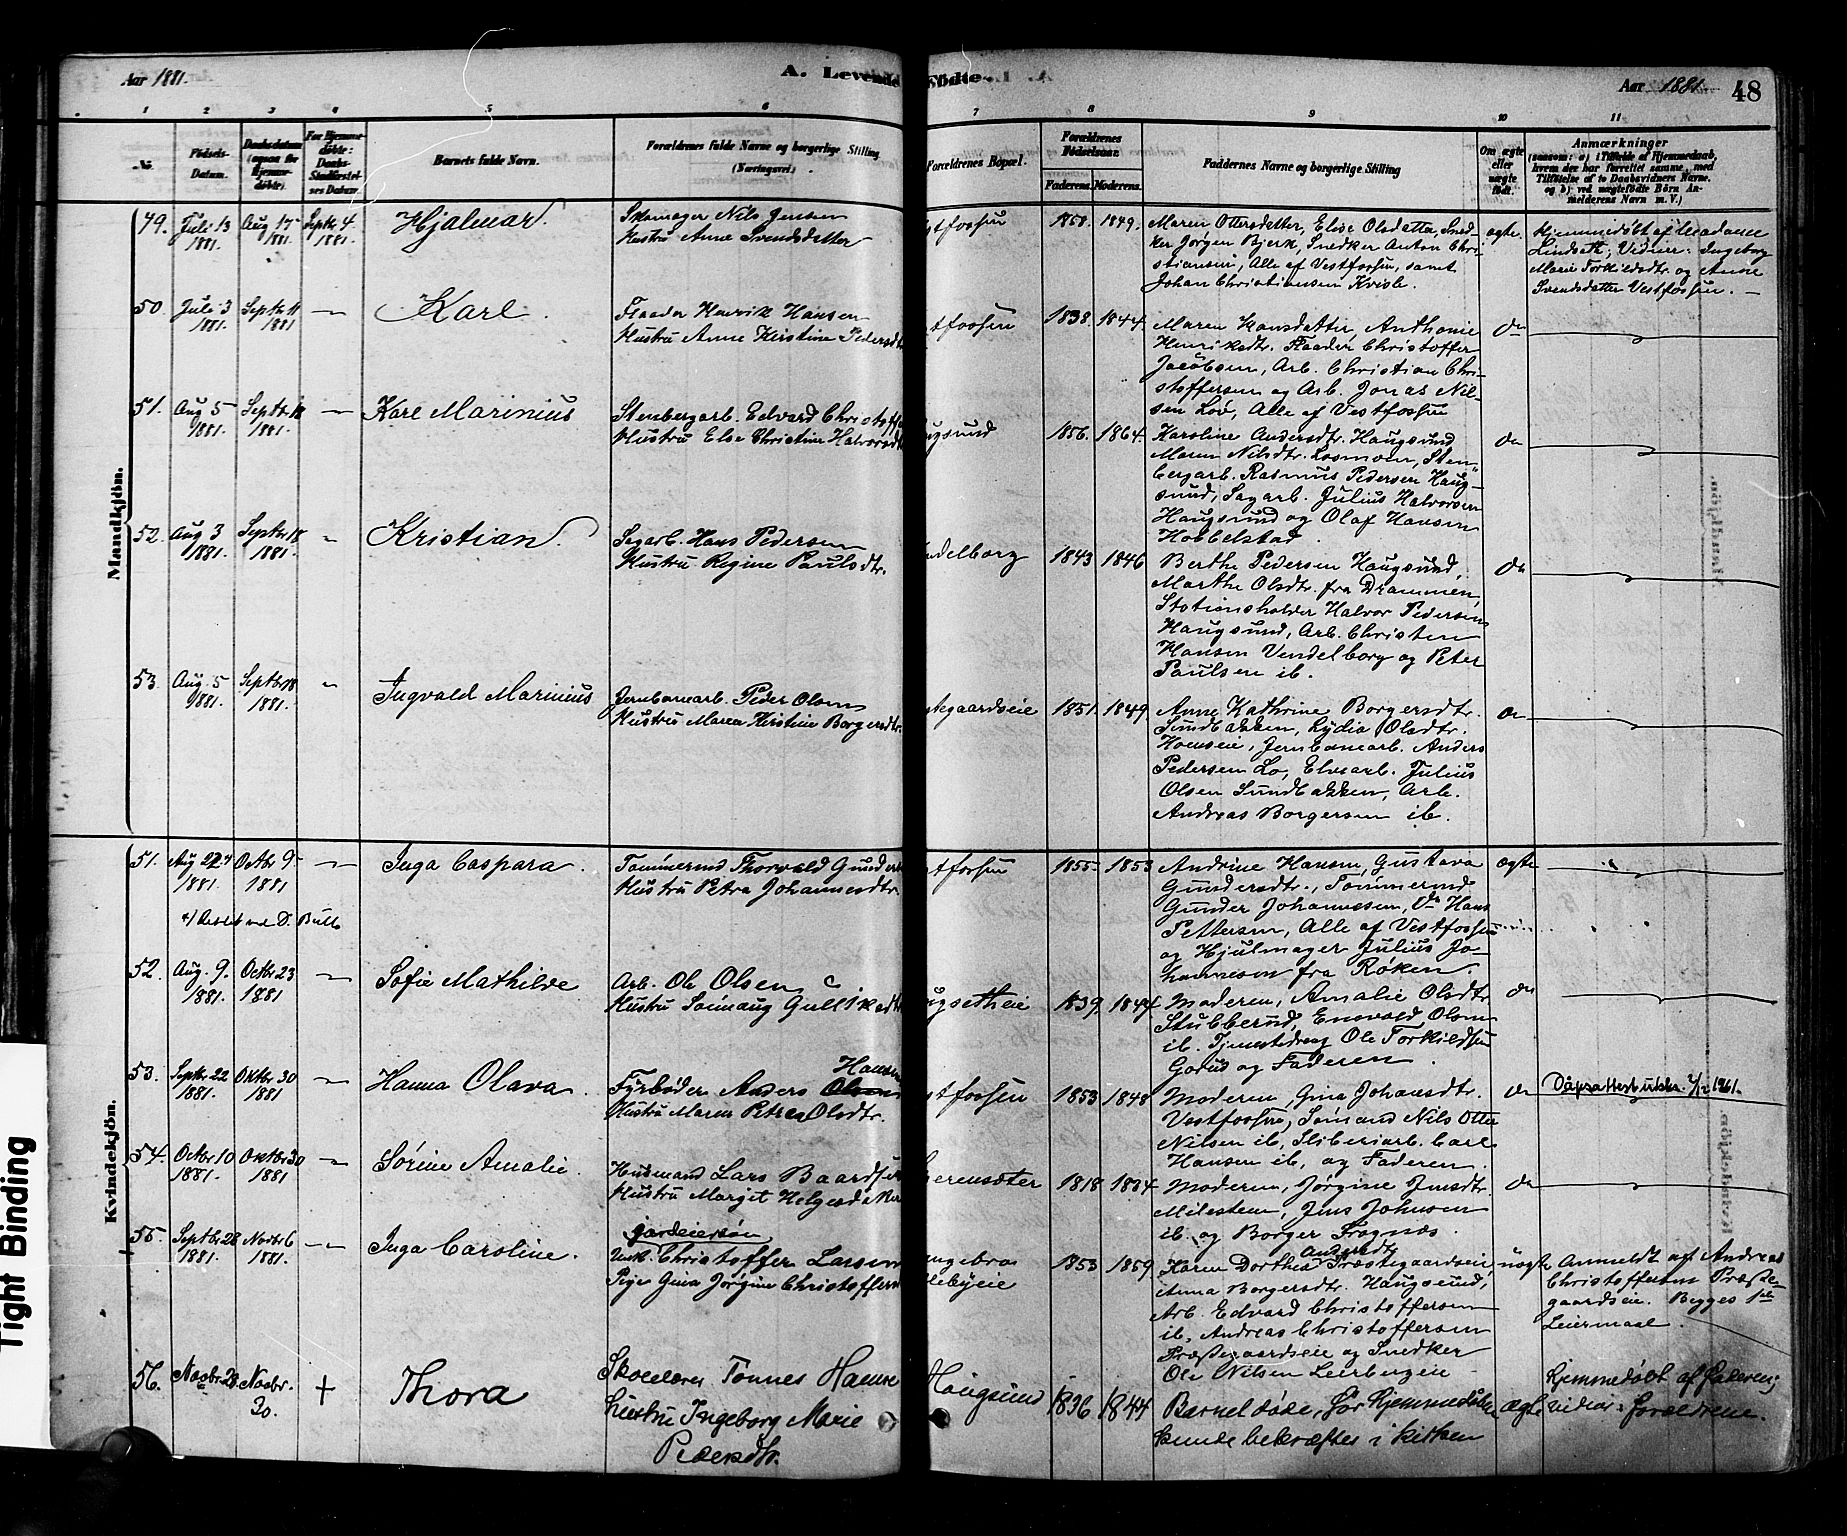 Aar 1881.
A. Levende Fødte.
Aar 1881.
48
1 2 3 4 5 6 7 8 9 10 11
No.
Fødsels-Datum.
Daabsdatum (ogsaa for Hjemmedøbte).
For Hjemmedøbte: Daabs-Stadfæstelses Datum.
Barnets fulde Navn.
Forældrenes fulde Navne og borgerlige Stilling (Næringsvei).
Forældrenes Bopæl.
Forældrenes Fødselsaar
Faderens. Moderens.
Faddernes Navne og borgerlige Stilling
Om ægte eller uægte født.
Anmærkninger
(saasom: a) i Tilfælde af Hjemmedaab,
hvem der har forrettet samme, med
Tilføielse af to Daabsvidners Navne,
og b) ved uægtefødte Børn Anmelderens Navn m. V.)
Mandkjøn.
49. Juli 13 1881. Aug 17 1881. Septbr 4 1881.
Hjalmar.
Skomager Nils Jensen
Hustru Anne Svendsdatter
stfossen
1858. 1849.
Maren Ottersdatter, Elise Olsdatter, Sned-
ker Jørgen Bjerk, Snedker Anton Chri-
stiansen, Alle af Vestfossen, samt
Johan Christiansen Kvisle.
ægte.
Hjemmedøbt af Madame
Lindseth, Vidner: Ingeborg
Marie Torkildsdtr. og Anne
Svendsdatter Vestfossen. —
50. Juli 3 1881. Septbr 11 1881 —
Karl.
Flaader Henrik Hansen
Hustru Anne Kirstine Pedersdt
stfossen
1838. 1844.
Maren Hansdatter, Anthonie
Henriksdtr. Flaader Christoffer
Jacobsen, Arb. Christian Chri-
stoffersen og Arb. Jonas Nil-
sen Lov, Alle af Vestfossen
do
51. Aug 5 1881. Septbr 18 1881. —
Karl Marinius
Stenbergarb. Edvard Christoff
Hustru Else Christine Halvorsdt
ugsund
1856. 1864.
Karoline Andersdtr. Haugsund
Maren Nilsdtr. Losmoen, Sten-
bergarb. Rasmus Pedersen Haug-
sund, Sagarb. Julius Halvorsen
Haugsund og Olaf Hansen
Hobbelstad.
do
52. Aug 3 1881. Septbr 18 1881. "
Kristian.
Sagarb. Hans Pedersen
Hustru Regine Paulsdtr.
ndelborg
1843 1846
Berthe Pedersen Haugsund,
Marthe Olsdtr. fra Drammen,
Stationsholder Halvor Pedersen
Haugsund, Arb. Christen
Hansen Vendelborg og Peter
Paulsen ib.
do
53 Aug. 5 1881. Septbr 18 1881. "
Ingvald Marinius
Jernbanearb. Peder Olsen
Hustru Maren Kirstine Borgersdtr.
stegaardseie
1851. 1849
Anne Kathrine Borgersdtr.
Sundbakken, Lydia Olsdtr.
Hoenseie, Jernbanearb. Anders
Pedersen Lo, Elvearb. Julius
Olsen Sundbakken, Arb.
Andreas Borgersen ib.
do
Kvindekjön.
51. Aug 22 1881. Octbr 9 1881 —
Inga Caspara.
Tømmermd Thorvald Gunders
Hustru Petra Johannesdtr.
stfossen
1855. 1853
Andrine Hansen, Gustava
Gundersdtr., Tømmermd
Gunder Johannessen, Do Hans
Pettersen, Alle af Vestfossen
og Hjulmager Julius Jo-
hannesen fra Røken.
ægte
52. Aug. 9. 1881. Octbr 23 1881 —
Sofie Mathilde
Arb. Ole Olsen
Hustru Gulliksdt
ugsetheie
1839. 1844
Moderen, Amalie Olsdtr.
Stubberud, Enevold Olsen
ib. Tjenestedreng Ole Torkildsen
Gorud og Faderen.
do
53. Septbr 22 1881. Oktbr 30 1881 —
Hanna Olava.
Fyrbøder Anders Hansen
Hustru Maren Petrea Olsdtr.
stfossen
1853 1848
Moderen, Gina Johansdtr.
Vestfossen, Sømand Nils Otto
Nilsen ib, Sliberiarb. Carl
Hansen ib, og Faderen.
do
Dåpsattest utst. 2/12 1961.
54. Octbr 10 1881. Oktbr 30 1881 —
Sørine Amalie.
Husmand Lars Baardsen
Hustru Margit Helgesd
erensæter
1818 1834
Moderen, Jørgine Jensdtr.
Milesteen, Jens Johnsen
ib. og Borger Fragnæs
do
55. Septbr 28 1881. Novbr 6 1881. —
Inga Caroline.
gardeiersøn
Ungk. Christoffer Larsen
Pige Gina Jørgine Christoffersen
ngebra
lebyeie
1853 1859
Andersdtr
Karen Dorthea Præstegaardseie,
Anna Borgersdtr. Haugsund,
Arb. Edvard Christoffersen
ib, Andreas Christoffersen
Præstegaardseie og Snedker
Ole Nilsen Leerbergeie
uægte
Anmeldt af Andreas
Christoffersen Præste-
gaardseie. Begges 1ste
Leiermaal.
56. Novbr 20 Novbr. 30. +
Thora
Skolelærer Tønnes Hanse
Hustru Ingeborg Marie
Pedersdtr.
Haugsund
1836 1844
Barnet døde, før Hjemmedåben
kunde bekræftes i kirken
ægte
Hjemmedøbt af faderen;
vidner: forældrene.
Tight Binding